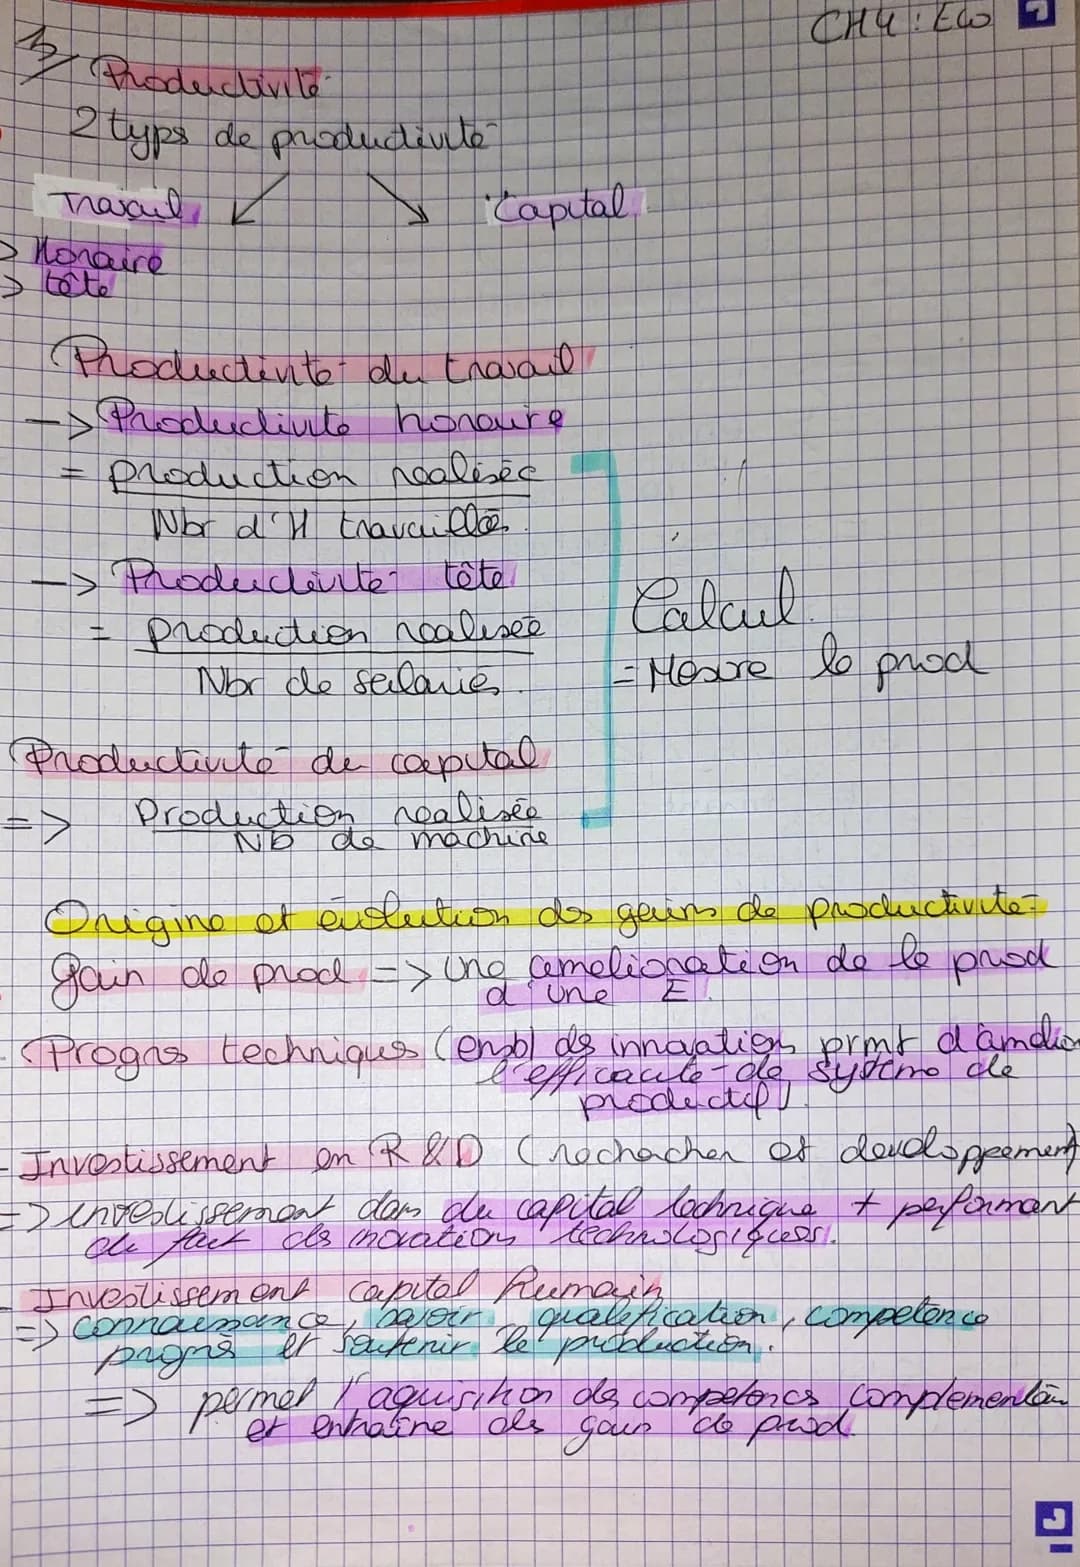 CH4 : Eco
Productivité
2 typs de productivité
Travail
Capital
> Horaire
> tête
Productivité du travail
-> Productivité horaire
= production réalisée
Nbr d'H travaillées
-> Productivité tête
= production réalisée
Nbr de salariés.
Calcul
= Mesure la prod
Productivité de capital
=> Production réalisée
Nb de machine
Origine et évolution des gains de productivité
gain de prod => une amélioration de la prod
d'une E.
- Progrès techniques (ensbl ds innovation prmt d'amélior
l'efficacité de système de
productif).
- Investissement en R&D (rechecher et developpement)
=> investissement dans du capital technique + performant
du fait ds inovations technologiques.
- Investissement capital humain
=> connaissance, savoir, qualification, compétence
progrès et soutenir la production.
=> permet l'aquisition des compétencs complémentair
et entraîne des gain de prod.